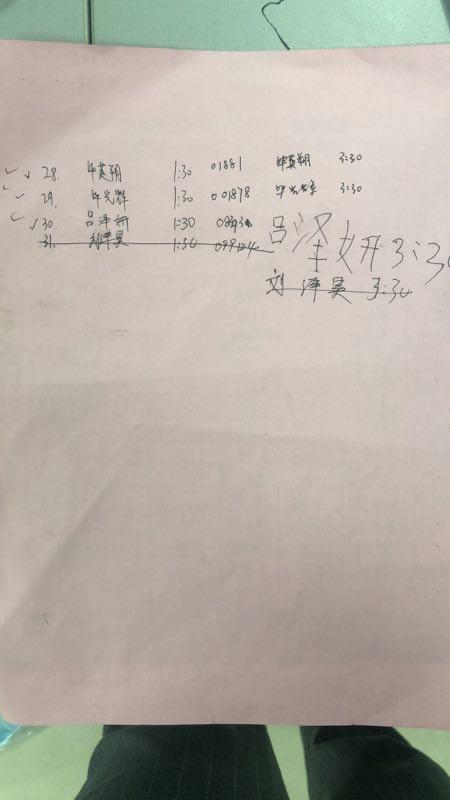 28. 毕英朔 1:30 01881 毕英朔 3:30
29. 毕光辉 1:30 001878 3:30
30. 吕泽妍 1:30 吕泽妍 3:30
31. 刘泽昊 1:30
刘泽昊 3:30